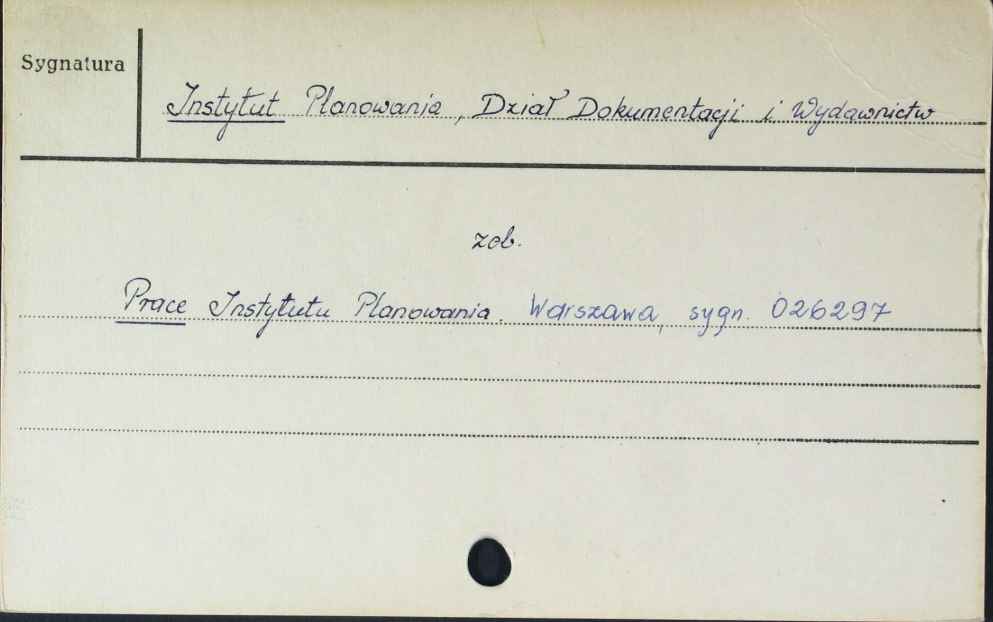 Sygnatura
Instytut Planowania, Dział Dokumentacji i Wydawnictw
zob.
Prace Instytutu Planowania. Warszawa, sygn. 026297